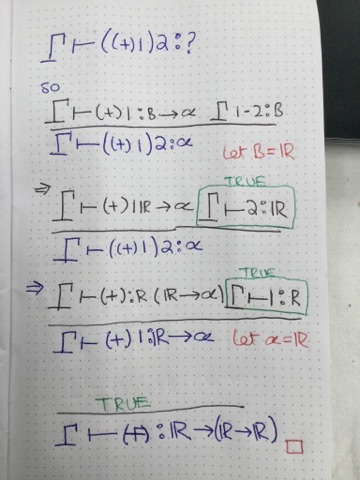 Γ ⊢ ((+)1)2:?
so
Γ ⊢ (+)1:B→α Γ ⊢ 2:B
Γ ⊢ ((+)1)2:α
Let B=ℝ
TRUE
⇒ Γ ⊢ (+)1ℝ→α Γ ⊢ 2:ℝ
Γ ⊢ ((+)1)2:α
TRUE
⇒ Γ ⊢ (+):R(ℝ→α) Γ ⊢ 1:R
Γ ⊢ (+)1:ℝ→α Let α=ℝ
TRUE
Γ ⊢ (+):ℝ→(ℝ→ℝ) □